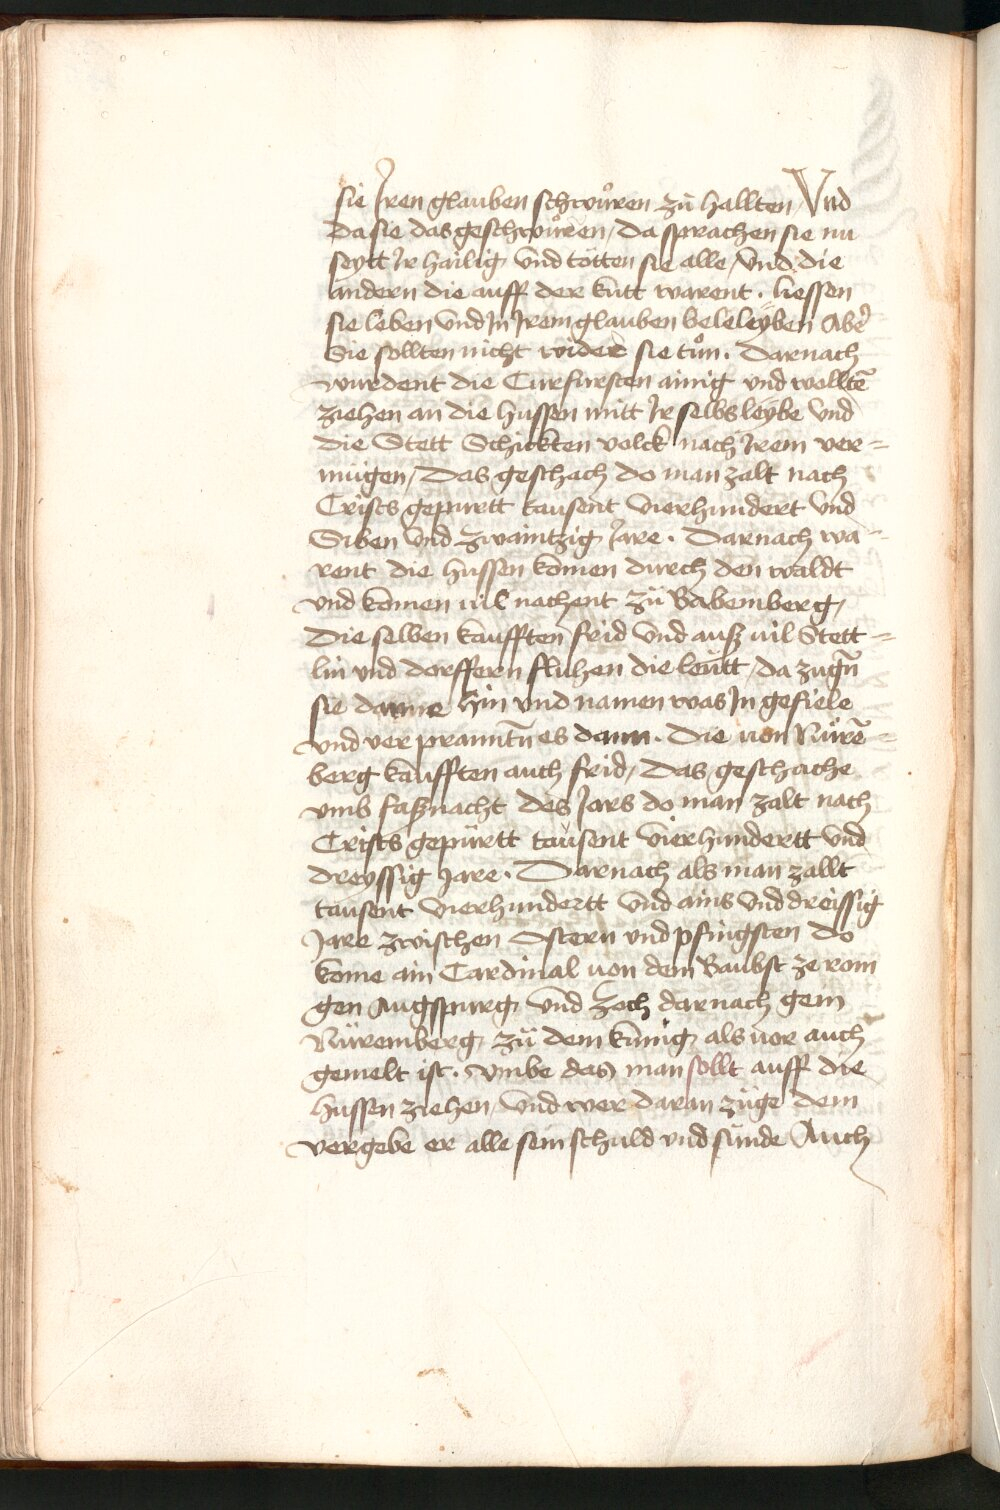 sie Jren glauben schwůren zů hallten / Vnd
da sie das geschwůren / da sprachen sie nu
seytt Jr hailig vnd tötten sie alle / vnd die
andern die auff der kutt warent . liessen
sie leben vnd Jn Jrem glauben beleleyben Abeř
Sie sollten nicht wider sie tůn . Darnach
wurdent die Curfursten ainig vnd wolltē
ziehen an die hussen mitt Jr selbs leybe vnd
die Stett Schickten volck nach Jrem ver=
mügen / Das geschach do man zalt nach
Crists gepurtt tausent vierhundert vnd
Siben vnd zwaintzig Jare . Darnach wa=
rent die hussen komen durch den waldt
vnd komen uil nachent zů Babemberg /
Die selben kaufften frid vnd auß uil Stett=
lin vnd dorffern fluhen die leütt / da zugn̄
sie danne hin vnd namen was Jn gefiele
vnd ver pranntn̄ es dann . Die uon Nürē=
berg kaufften auch frid / Das geschache
vmb faßnacht des Jars do man zalt nach
Crists gepürtt tausent vierhundertt vnd
dreyssig Jare . Darnach als man zallt
tausent vierhundertt vnd ains vnd dreissig
Jare zwischen Ostern vnd pfingsten do
kome ain Cardinal uon dem Baubst ze rom
gen Augspurg vnd zoch darnach gem
Nüremberg zů dem kunig als uor auch
gemelt ist . vmbe das man sollt auff die
hussen ziehen / vnd wer daran züge dem
vergebe er alle sein schuld vnd sünde Auch